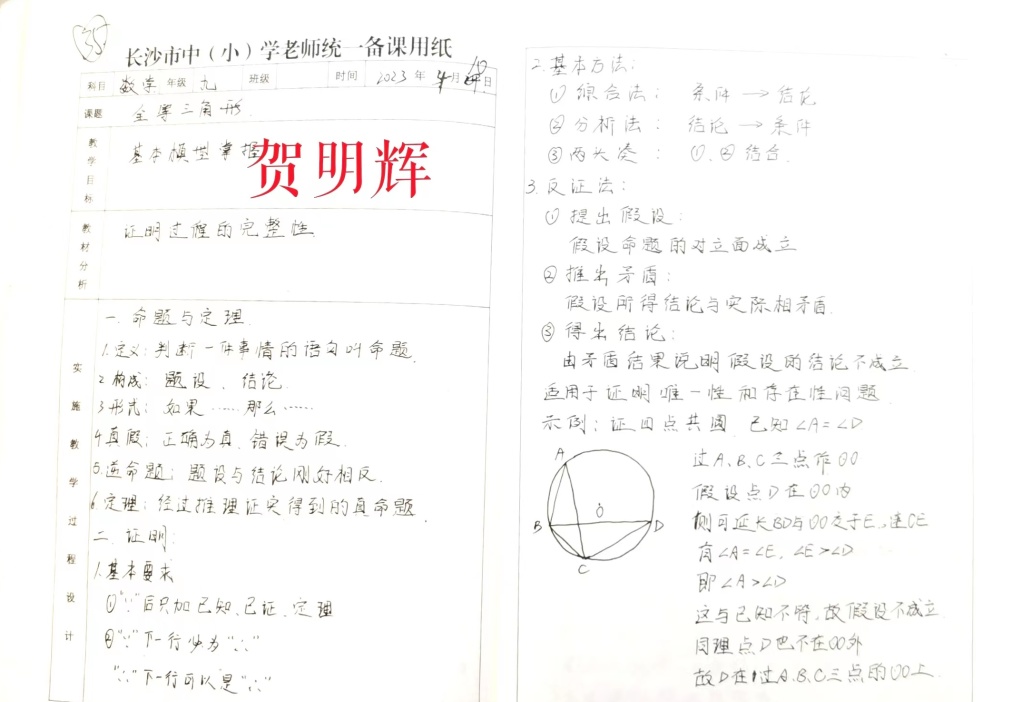 35
长沙市中（小）学老师统一备课用纸
科目 数学 年级 九 班级 时间 2023 年 月 10 日
课题 全等三角形
教学目标 基本模型掌握
贺明辉
教材分析 证明过程的完整性
实施教学过程设计
一.命题与定理.
1.定义：判断一件事情的语句叫命题.
2 构成：题设、结论.
3 形式：如果……那么……
4 真假：正确为真.错误为假.
5.逆命题：题设与结论刚好相反.
6.定理：经过推理证实得到的真命题.
二.证明：
1.基本要求
①"∵"后只加已知、已证、定理
②"∵"下一行必为"∴"
"∴"下一行可以是"∴"
2.基本方法：
① 综合法： 条件 → 结论
② 分析法： 结论 → 条件
③ 两头凑： ①、② 结合.
3.反证法：
① 提出假设：
假设命题的对立面成立
② 推出矛盾：
假设所得结论与实际相矛盾.
③ 得出结论：
由矛盾结果说明假设的结论不成立.
适用于证明唯一性和存在性问题
示例：证四点共圆 已知∠A=∠D
A
B
C
D
O
过A、B、C三点作⊙O
假设点D在⊙O内
则可延长BD与⊙O交于E,连CE
有∠A=∠E, ∠E>∠D
即∠A>∠D
这与已知不符,故假设不成立.
同理点D也不在⊙O外
故D在过A、B、C三点的⊙O上.